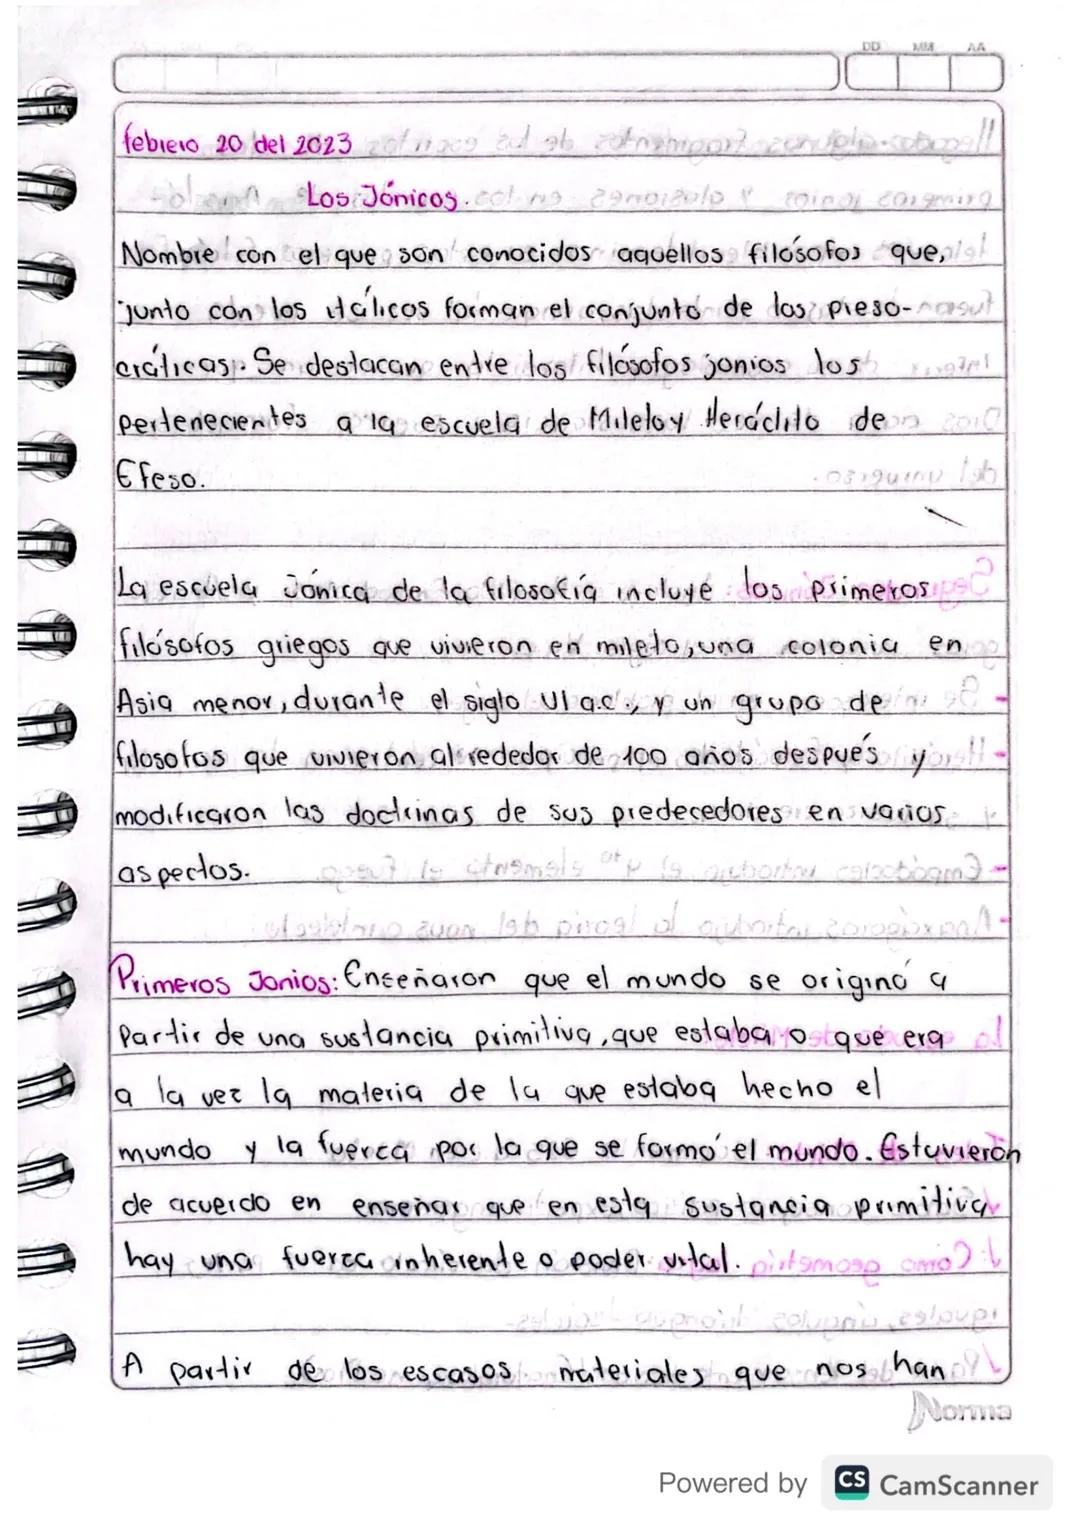 DD MM AA
febrero 20 del 2023
Los Jónicos.
Nombre con el que son conocidos aquellos filósofos que,
junto con los itálicos forman el conjunto de los preso-
cráticas. Se destacan entre los filósofos jonios los
pertenecientes a la escuela de Mileto y Heráclito de
Efeso.
La escuela Jónica de la filosofía incluye los primeros
filósofos griegos que vivieron en mileto, una colonia en
Asia menor, durante el siglo VI a.c., y un grupo de
filosofos que vivieron alrededor de 100 años después y
modificaron las doctrinas de sus predecedores en varios
aspectos.
Primeros Jonios: Enseñaron que el mundo se originó a
Partir de una sustancia primitiva, que estaba o que era
a la vez la materia de la que estaba hecho el
mundo y la fuerza por la que se formó el mundo. Estuvieron
de acuerdo en enseñar que en esta sustancia primitiva
hay una fuerza inherente o poder vital.
A partir de los escasos materiales que nos han
Norma
Powered by CS CamScanner